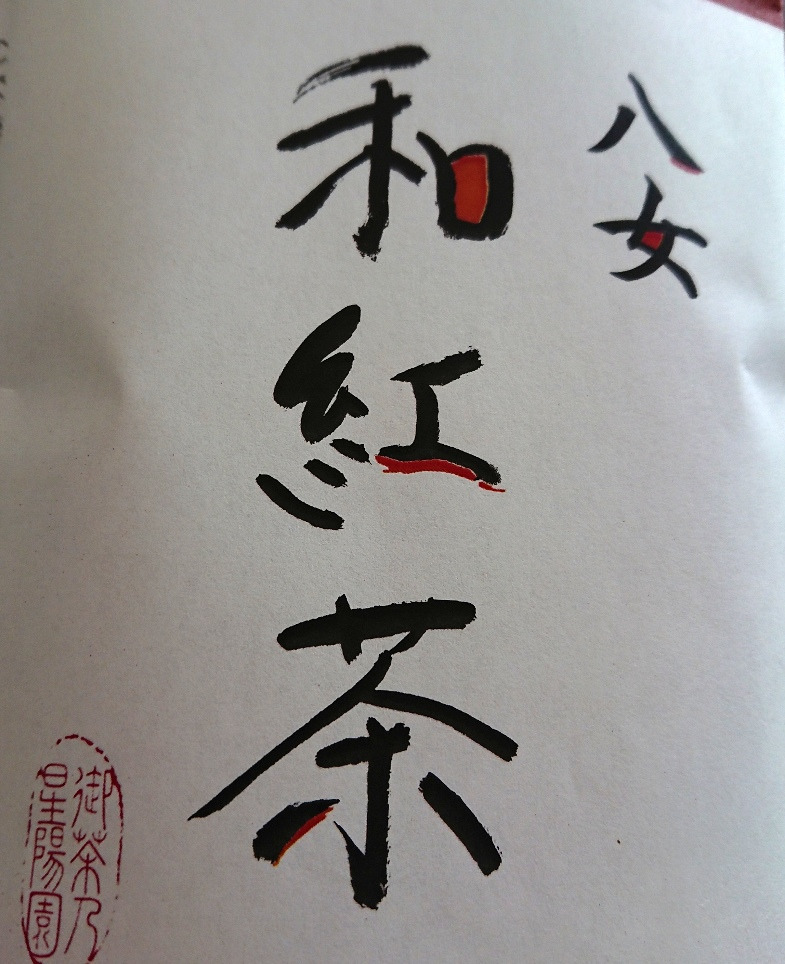 八女
和紅茶
御茶乃
星陽園